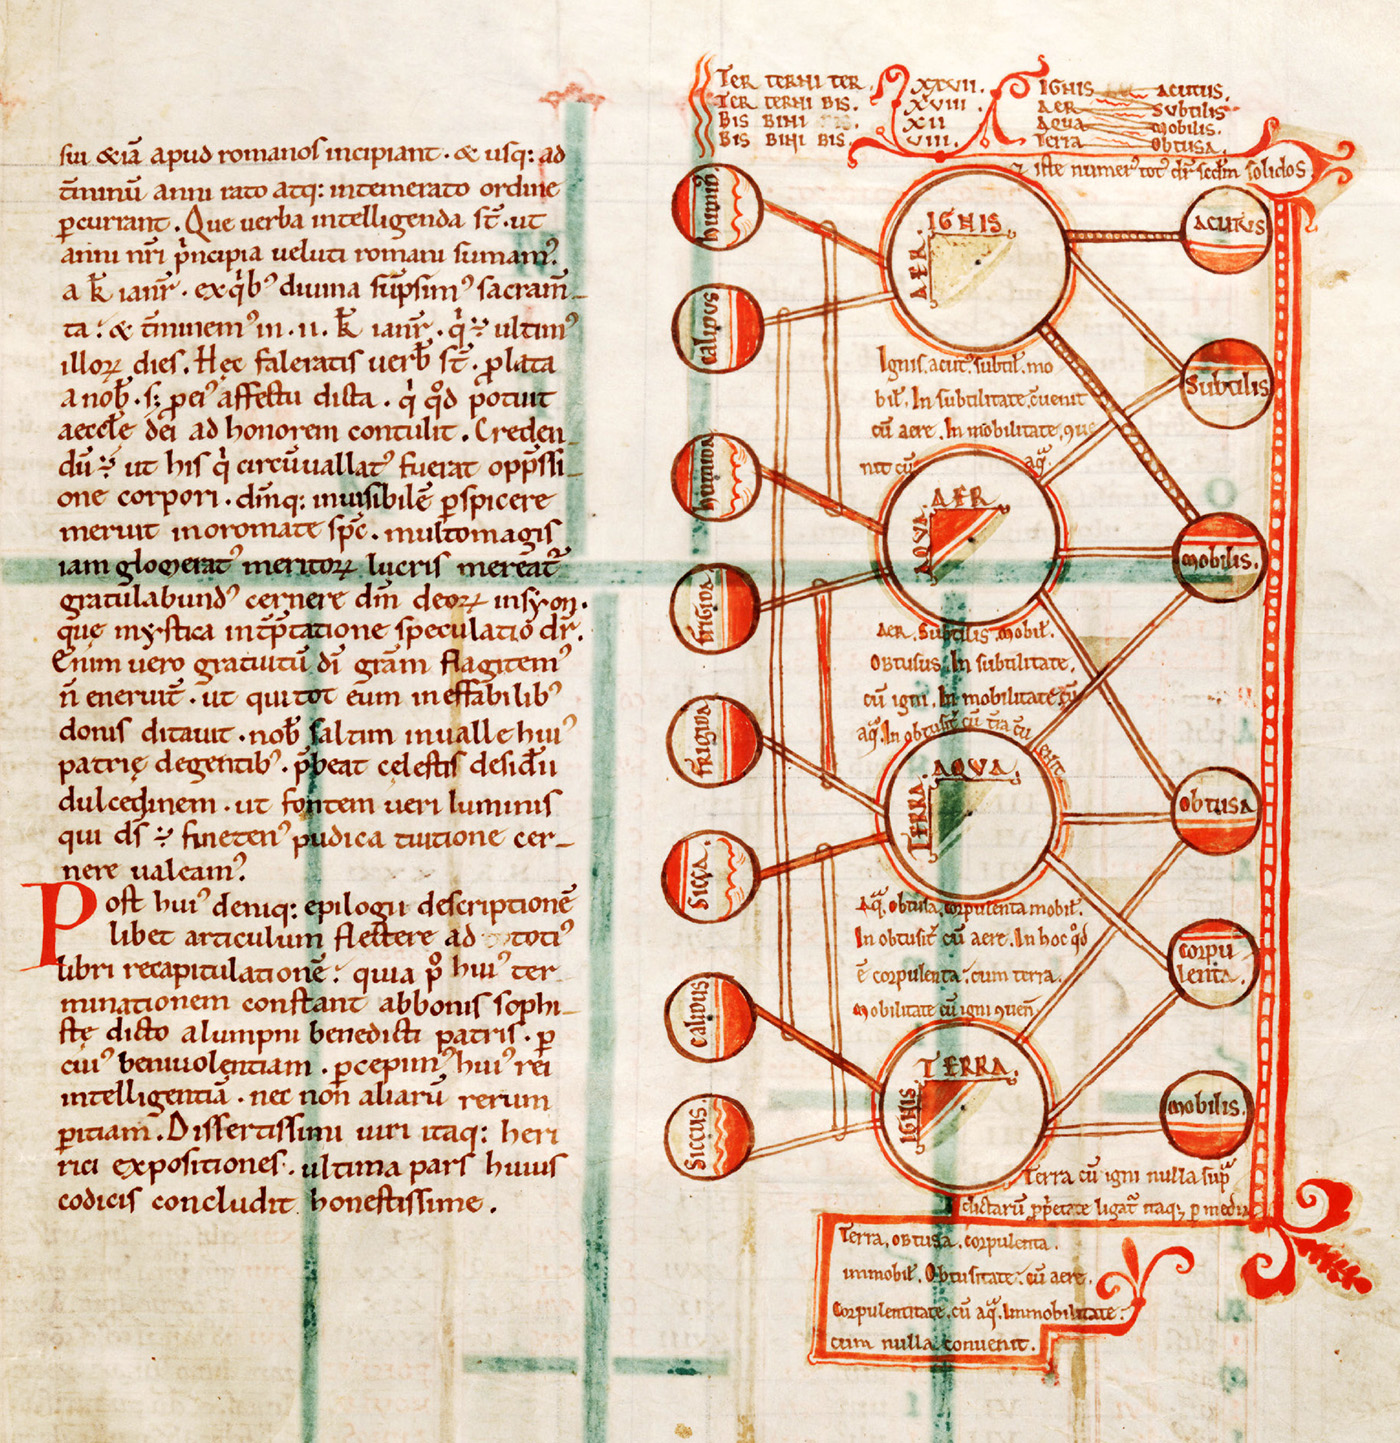 sui &iā apud romanos incipiant · & usq: ad
t̄minū anni rato atq: intemerato ordine
p̱currant. Que uerba intelligenda st̄ · ut
anni nr̄i pͥncipia ueluti romani sumam᷒
a k̄ ianr̄ · ex qͥb᷒ diuina sūpsim᷒ sacram̄-
ta : & t̄minem᷒ in · II · k̄ ianr̄ · qͥ ÷ ultim᷒
illoꝝ dies. Hęc faleratis uerb̄ st̄ · ꝓlata
a nob̄ · s; p̱ ei᷒ affectu dicta · qͥ qͦd potuit
aecclę dei ad honorem contulit. Creden-
dū ÷ ut his qͥ circūuallat᷒ fuerat opp̄ssi-
one corpori · dīnq: inuisibilē p̱spicere
meruit in oromate sp̄c · multomagis
iam glomerat᷒ meritoꝝ lucris mereat᷑
gratulabund᷒ cernere dm̄ deoꝝ in syon.
quę mystica int̄p̄tatione speculatio dr̄.
Enim uero gratuitū dī grām flagitem᷒
n̄ eneruit᷑ · ut qui tot eum ineffabilib᷒
donis ditauit · nob̄ saltim in ualle hui᷒
patrię degentib᷒ · p̄beat celestis desid̄ii
dulcedinem · ut fontem ueri luminis
qui ds̄ ÷ fineten᷒ pudica tuitione cer-
nere ualeam᷒
Post hui᷒ deniq: epilogii descriptionē
libet articulum flectere ad toti᷒
libri recapitulationē : quia p̱ hui᷒ ter-
minationem constant abbonis sophi-
stę dicto alumpni benedicti patris · p̱
cui᷒ beniuolentiam · p̱cepim᷒ hui᷒ rei
intelligentiā · nec non aliarū rerum
p̱itiam. Dissertissimi uiri itaq: heri
rici expositiones · ultima pars huius
codicis concludit honestissime.
TER TERNI TER. XXVII.
TER TERNI BIS. XVIII.
BIS BINI XII
BIS BINI BIS. VIII.
IGNIS ACUTUS.
AER SUBTILIS
AQUA MOBILIS.
TERRA OBTUSA.
iste numer᷒ tot dr̄ scdm̄ solidos.
HUMID᷒
IGNIS
AER
ACUTUS
CALIDUS
Ignis. acut᷒. subtil̄. mo
bil̄. In subtilitate c̄uenit
cū aere. In mobilitate, ꝯue
nit cū aq̄.
SUBTILIS
HUMIDA
AER
AQUA
MOBILIS.
FRIGIDA
AER. Subtilis. Mobil̄.
OBTUSUS. In subtilitate,
cū igni. In mobilitate cū
aq̄. In obtusit̄ cū t̄ra c̄u
enit
FRIGIDA
AQUA
TERRA
OBTUSA
SICCA.
Aq̄. obtusa, corpulenta mobil̄.
In obtusit̄ cū aere. In hoc qͦd
ē corpulenta : cum terra.
Mobilitate cū igni ꝯuen̄.
CORPU
LENTA.
CALIDUS
TERRA.
IGNIS
MOBILIS.
SICCUS.
Terra cū igni nulla sup̄
dictarū p̱p̱etate ligat᷑ itaq; p̱ mediū
Terra, obtusa. corpulenta.
immobil̄. Obtusitate : cū aere.
Corpulentitate. cū aq̄. Immobilitate :
cum nulla conuenit.